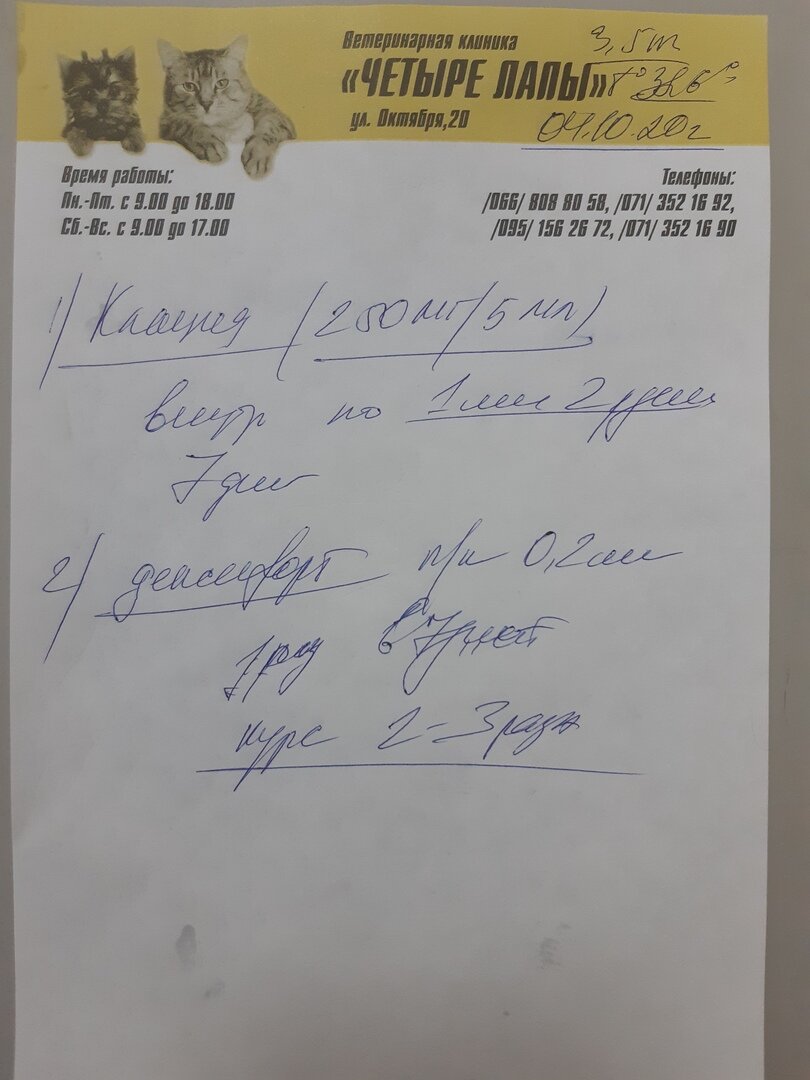 Ветеринарная клиника
«ЧЕТЫРЕ ЛАПЫ»
ул. Октября,20
3,5
04.10.20г
Время работы:
Пн.-Пт. с 9.00 до 18.00
Сб.-Вс. с 9.00 до 17.00
Телефоны:
/066/ 808 80 58, /071/ 352 16 92,
/095/ 156 26 72, /071/ 352 16 90
1) (250мг/5мл)
внутр по 1мл 2
7 дн
2) п/к 0,2мл
1 раз в 7 дней
курс 2-3 раза